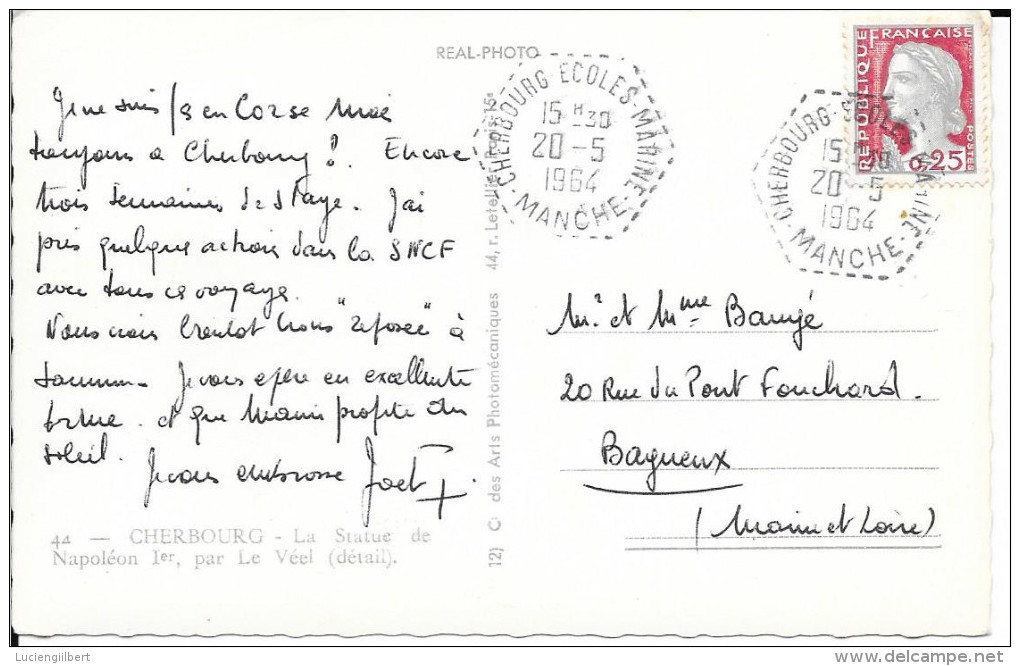 REAL-PHOTO
Je ne suis en Corse mais
toujours à Cherbourg ! Encore
trois semaines de stage. J'ai
pris quelque action dans la SNCF
avec tous ce voyage.
Vous nous "reposée" à
Je vous espère en excellente
forme. et que Mamie profite du
soleil.
Je vous embrasse Joël
44 — CHERBOURG - La Statue de
Napoléon Ier, par Le Véel (détail).
12) des Arts Photomécaniques 44, r. Letellier
CHERBOURG ECOLES-MARINE
15 H 30
20 - 5
1964
MANCHE
REPUBLIQUE FRANÇAISE
0,25
POSTES
CHERBOURG ECOLES MARINE
15 H 30
20 - 5
1964
MANCHE
Mr et Mme Baugé
20 Rue du Pont Fouchard.
Bagneux
(Maine et Loire)
Luciengilbert
www.delcampe.net